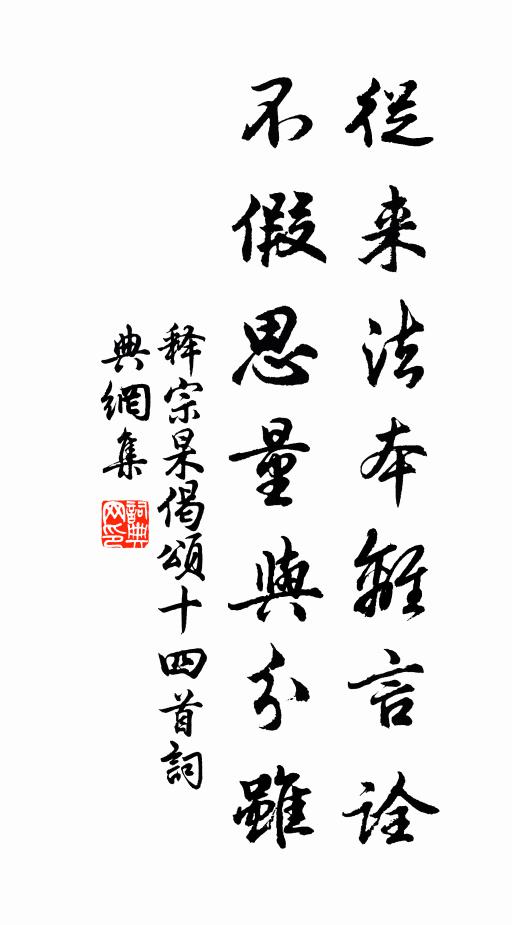 從来法本離言詮
不假思量與分雖
释宗杲偈頌十四首詞
典網集
詞典网印